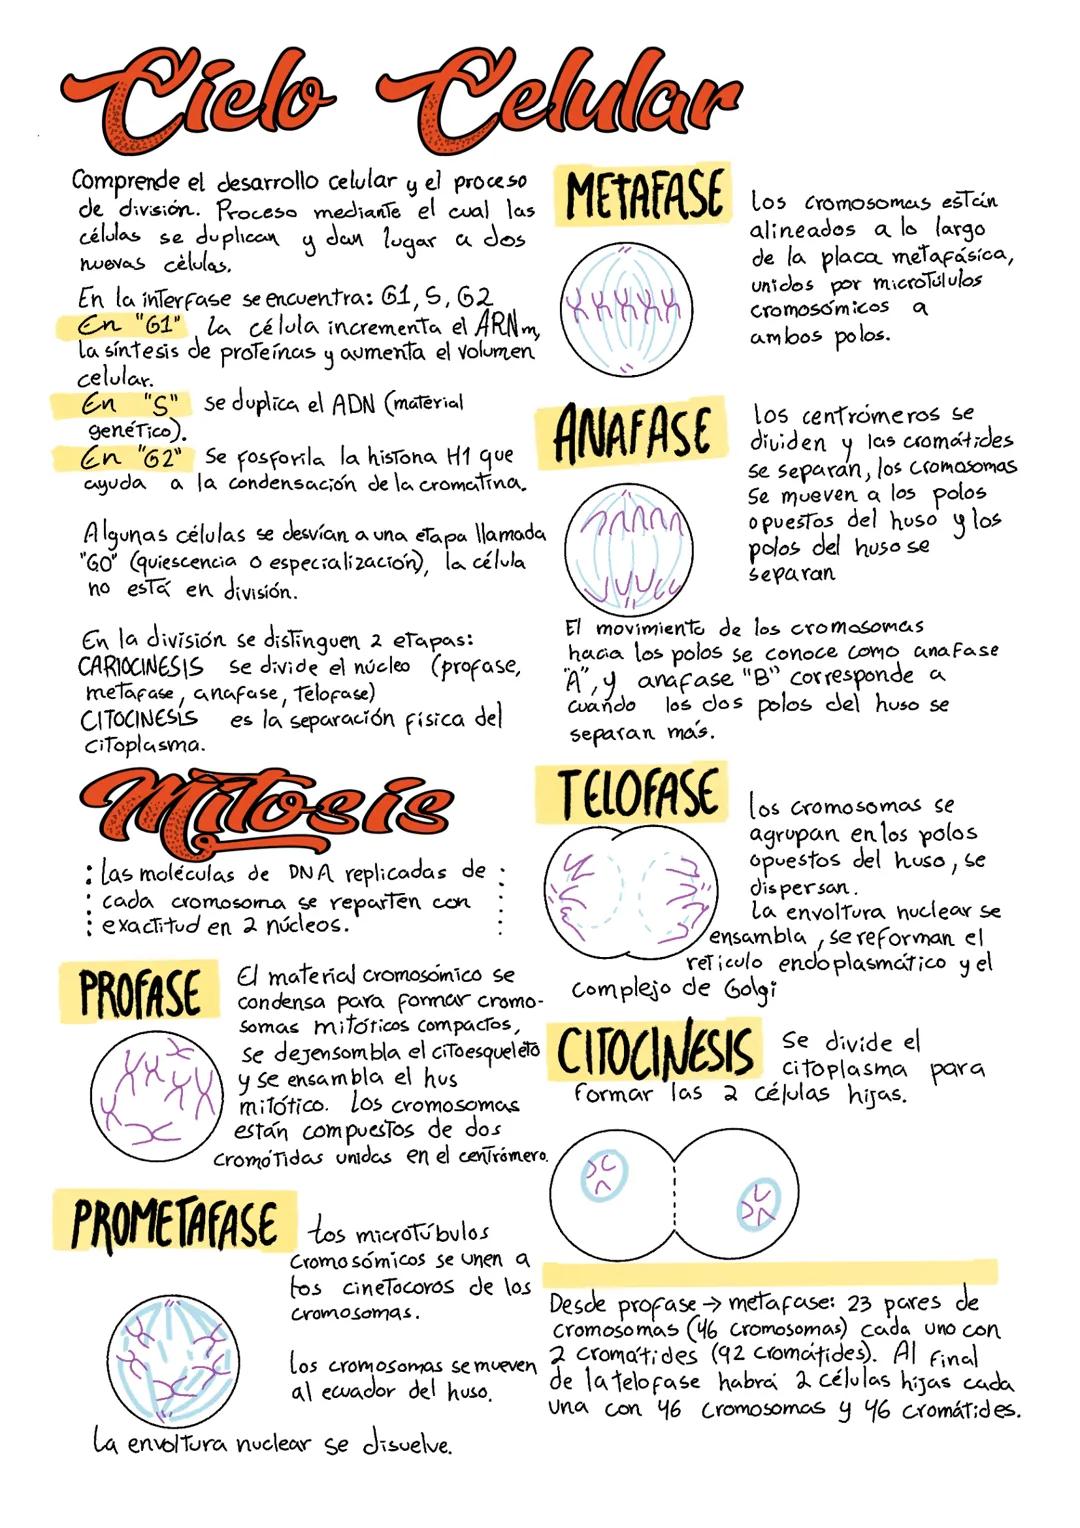 Ciclo Celular
Comprende el desarrollo celular y el proceso
de división. Proceso mediante el cual las
células se duplican y dan lugar a dos
nuevas células.
En la interfase se encuentra: G1, S, G2
En "G1" la célula incrementa el ARNm,
la síntesis de proteínas y aumenta el volumen
celular.
En "S" se duplica el ADN (material
genético).
En "G2" se fosforila la histona H1 que
ayuda a la condensación de la cromatina.
Algunas células se desvían a una etapa llamada
"G0" (quiescencia o especialización), la célula
no está en división.
En la división se distinguen 2 etapas:
CARIOCINESIS se divide el núcleo (profase,
metafase, anafase, telofase)
CITOCINESIS es la separación física del
citoplasma.
Mitosis
: las moléculas de DNA replicadas de :
: cada cromosoma se reparten con :
: exactitud en 2 núcleos. :
PROFASE
El material cromosómico se
condensa para formar cromo-
somas mitóticos compactos,
se dejensombla el citoesqueleto
y se ensambla el hus
mitótico. Los cromosomas
están compuestos de dos
cromótidas unidas en el centrómero.
PROMETAFASE
los microtúbulos
cromosómicos se unen a
los cinetocoros de los
cromosomas.
los cromosomas se mueven
al ecuador del huso.
la envoltura nuclear se disuelve.
METAFASE
los cromosomas están
alineados a lo largo
de la placa metafásica,
unidos por microtúlulos
cromosómicos a
ambos polos.
ANAFASE
los centrómeros se
dividen y las cromátides
se separan, los cromosomas
se mueven a los polos
opuestos del huso y los
polos del huso se
separan
El movimiento de los cromosomas
hacia los polos se conoce como anafase
"A", y anafase "B" corresponde a
cuando los dos polos del huso se
separan más.
TELOFASE
los cromosomas se
agrupan en los polos
opuestos del huso, se
dispersan.
la envoltura nuclear se
ensambla, se reforman el
retículo endoplasmático y el
complejo de Golgi
CITOCINESIS
se divide el
citoplasma para
formar las 2 células hijas.
Desde profase → metafase: 23 pares de
cromosomas (46 cromosomas) cada uno con
2 cromátides (92 cromátides). Al final
de la telofase habrá 2 células hijas cada
una con 46 cromosomas y 46 cromátides.